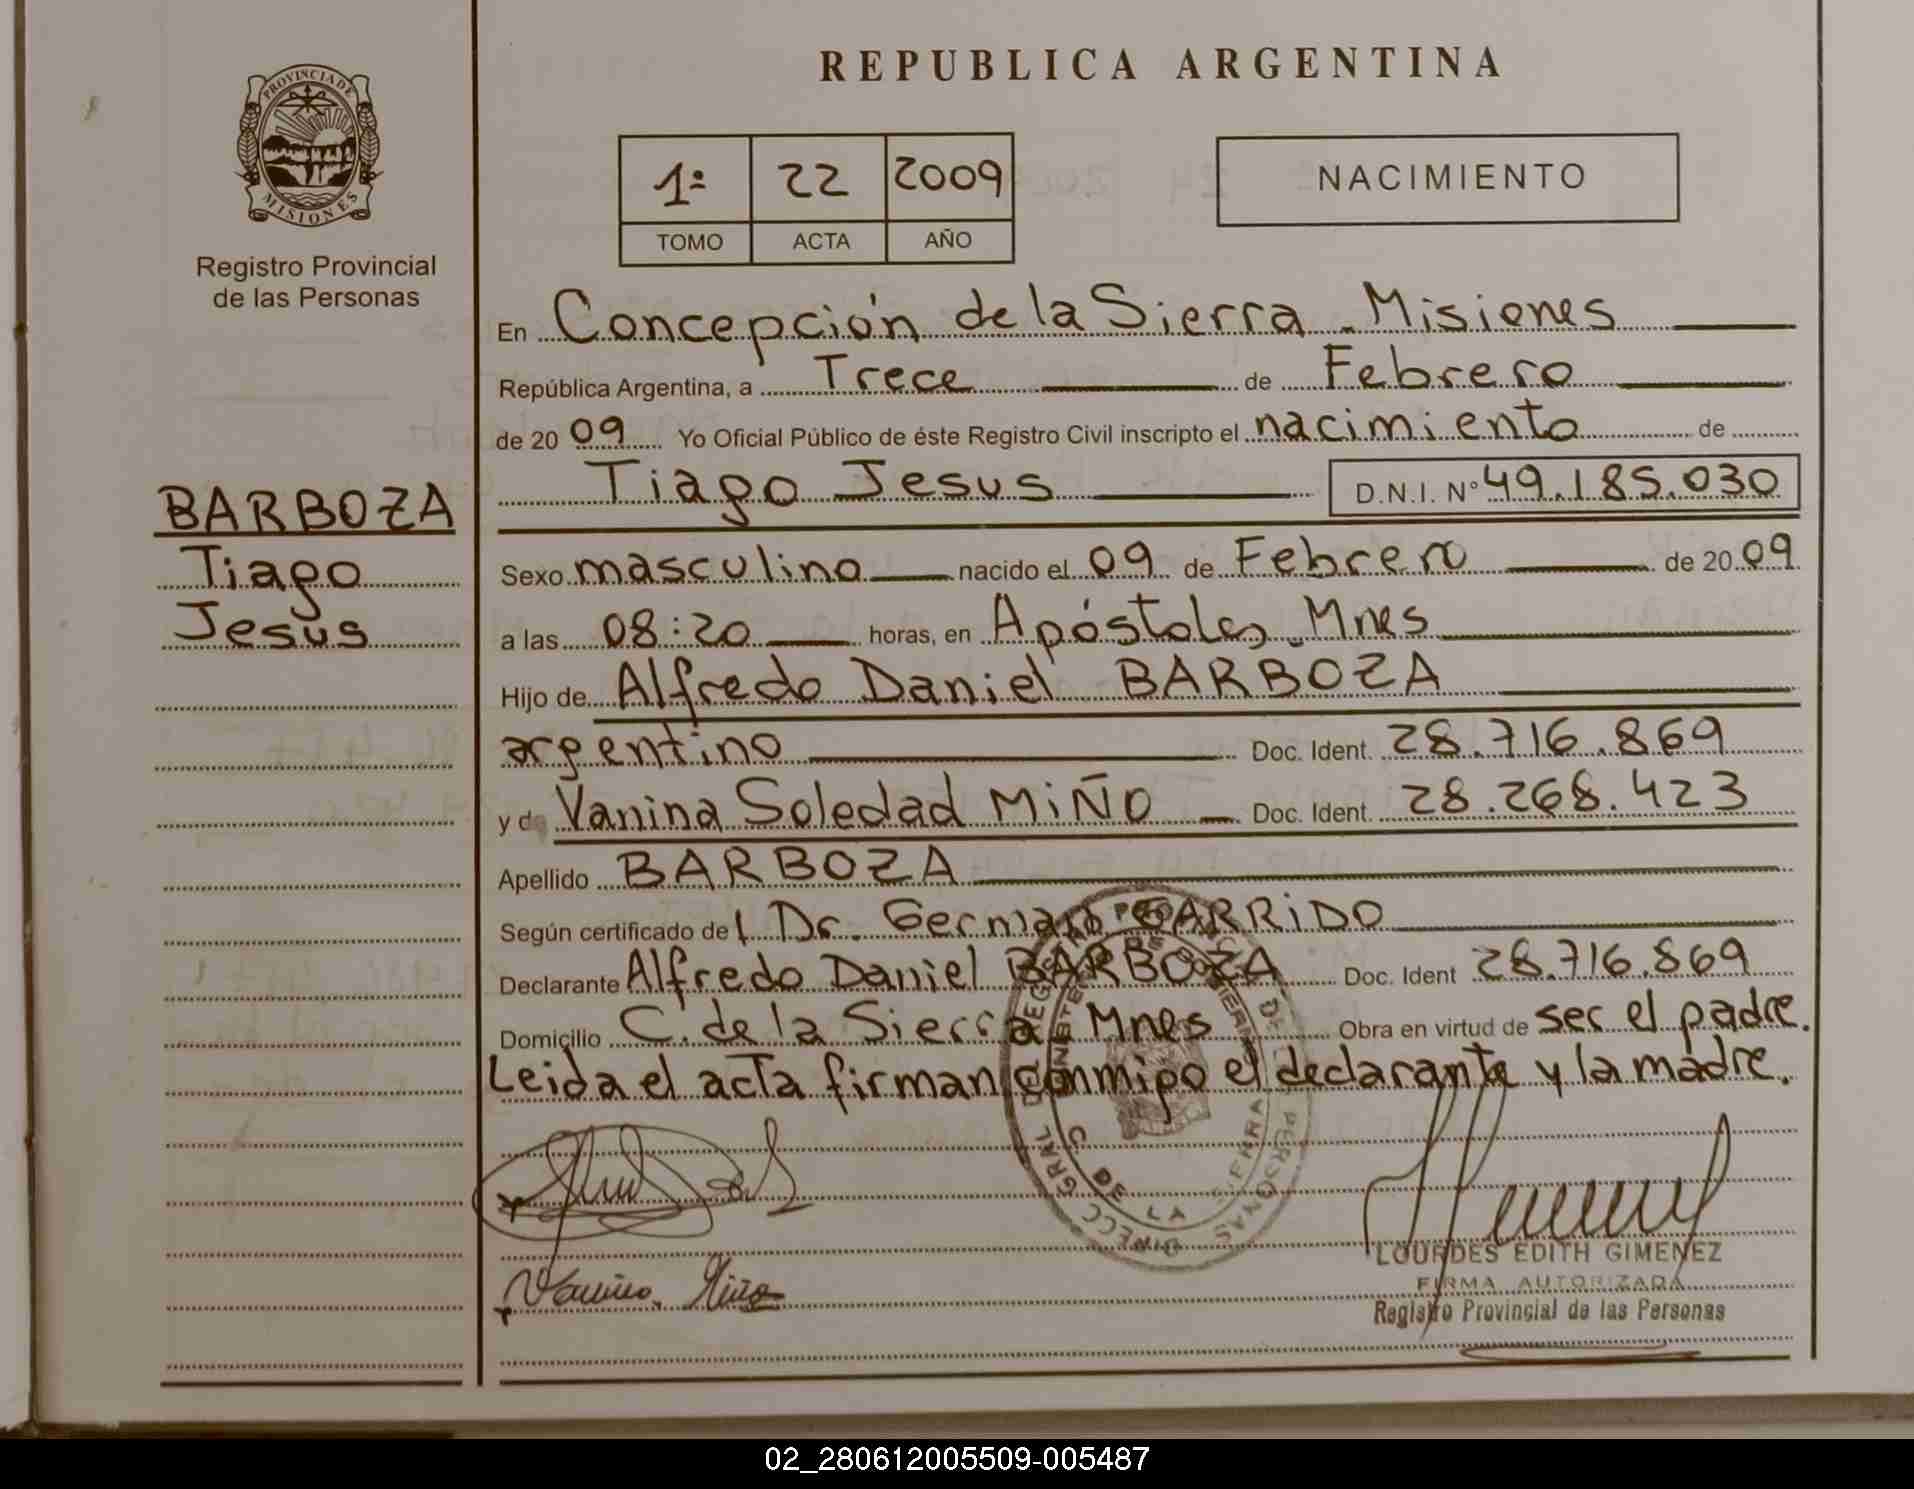 PROVINCIA DE
MISIONES
Registro Provincial
de las Personas
BARBOZA
Tiago
Jesus
REPUBLICA ARGENTINA
1º 22 2009
TOMO ACTA AÑO
NACIMIENTO
En Concepción de la Sierra - Misiones
República Argentina, a Trece de Febrero
de 2009 Yo Oficial Público de éste Registro Civil inscripto el nacimiento de
Tiago Jesus D.N.I. Nº 49.185.030
Sexo masculino nacido el 09 de Febrero de 2009
a las 08:20 horas, en Apóstoles - Mnes
Hijo de Alfredo Daniel BARBOZA
argentino Doc. Ident. 28.716.869
y de Vanina Soledad MIÑO Doc. Ident. 28.268.423
Apellido BARBOZA
Según certificado del Dr. German GARRIDO
Declarante Alfredo Daniel BARBOZA Doc. Ident 28.716.869
Domicilio C. de la Sierra Mnes Obra en virtud de ser el padre.
Leida el acta firman conmigo el declarante y la madre.
C. DE LA SIERRA
Vanina Miño
LOURDES EDITH GIMENEZ
FIRMA AUTORIZADA
Registro Provincial de las Personas
02_280612005509-005487